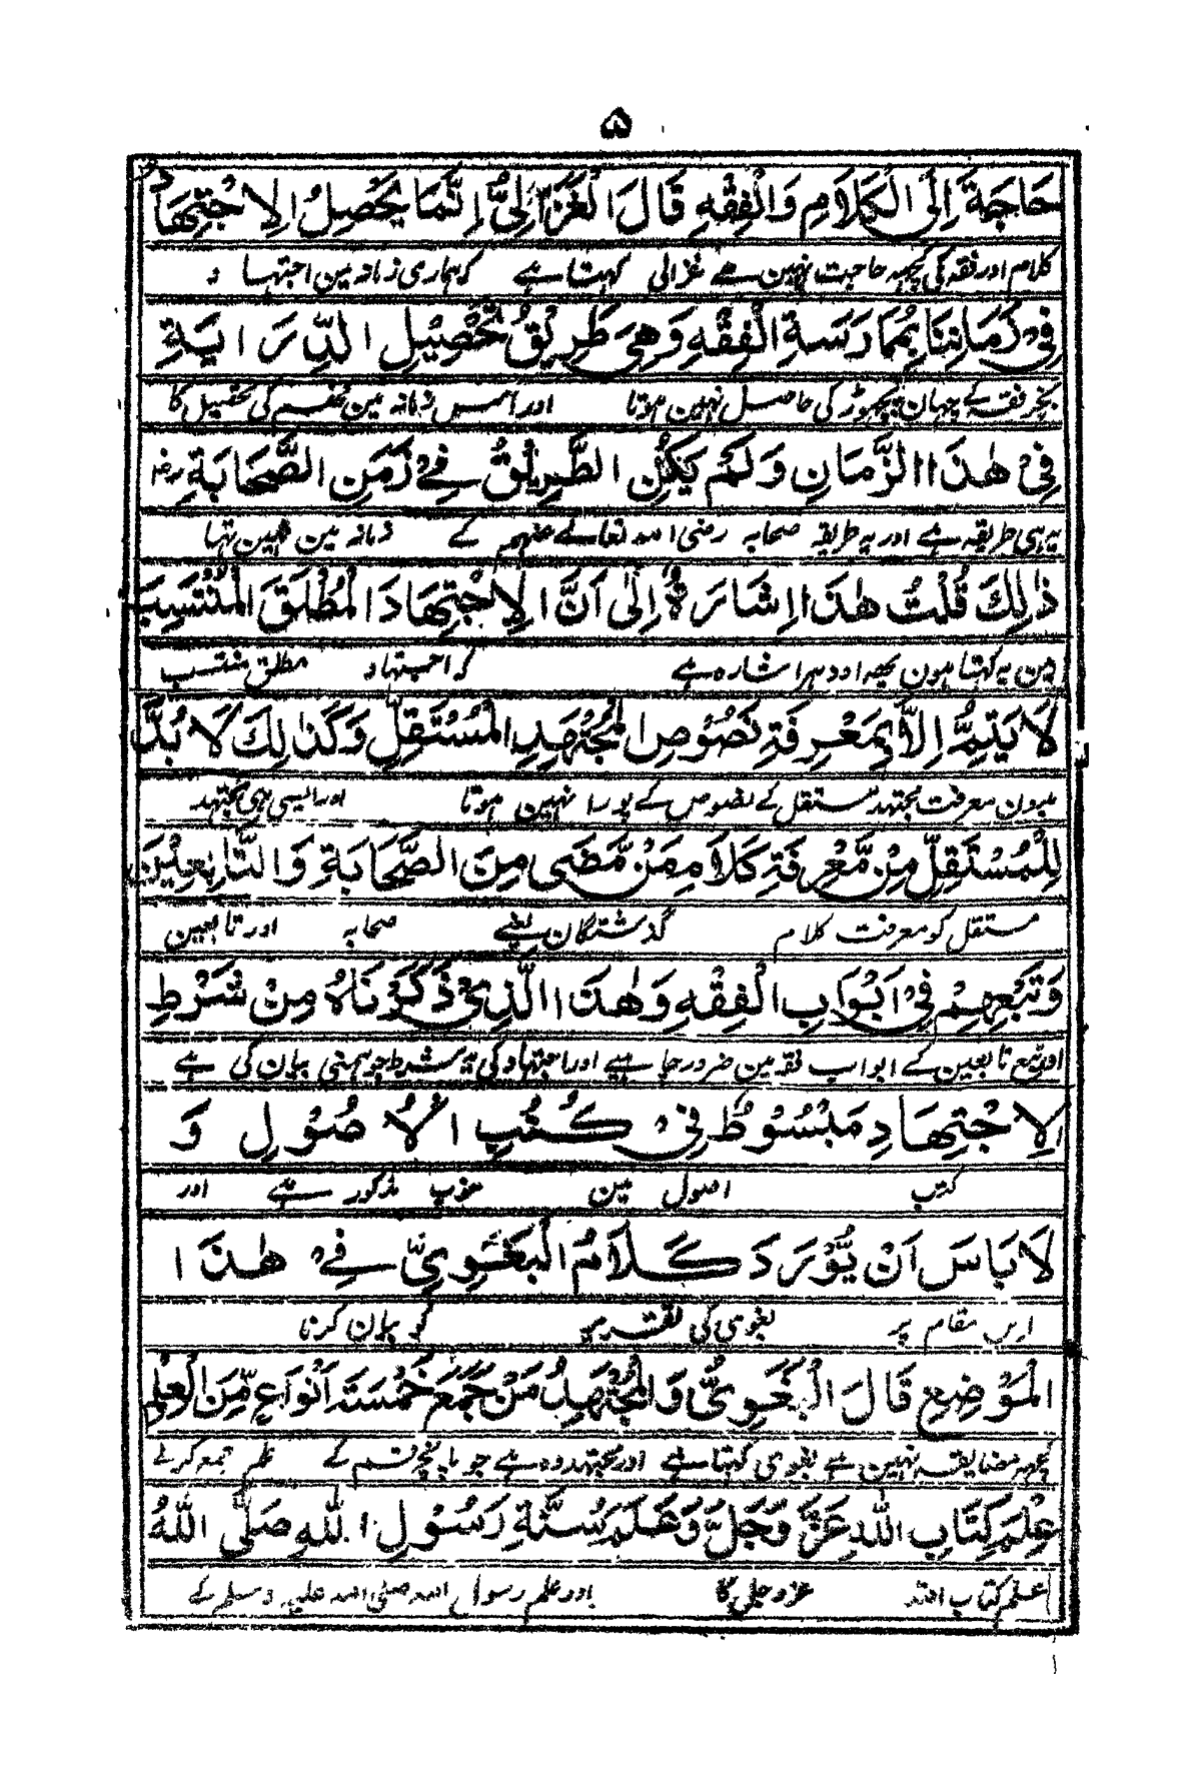 ۵
حَاجَةَ اِلَى الْكَلَامِ وَالْفِقْهِ قَالَ الْغَزَالِيُّ اِنَّمَا يَحْصِلُ الِاجْتِهَادُ
کلام اور فقہ کی کچھہ حاجت نہین ہے غزالی کہتا ہے کہ ہماری زمانہ مین اجتہا د
فِيْ زَمَانِنَا بِمُمَارَسَةِ الْفِقْهِ وَهِيَ طَرِيْقُ تَحْصِيْلِ الدِّرَايَةِ
بغیر فقہ کے چہان پچھوڑ کی حاصل نہین ہوتا اور اس زمانہ مین فہم کی تحصیل کا
فِيْ هٰذَا الزَّمَانِ وَلَمْ يَكُنِ الطَّرِيْقُ فِيْ زَمَنِ الصَّحَابَةِ رض
یہ ہی طریقہ ہے اور یہ طریقہ صحابہ رضی اللہ تعالے عنہم کے زمانہ مین نہین تہا
ذٰلِكَ قُلْتُ هٰذَا اِشَارَةٌ اِلٰى اَنَّ الِاجْتِهَادَ الْمُطْلَقَ الْمُنْتَسِبَ
مین یہ کہتا ہون یہہ اودہر اشارہ ہے کہ اجتہاد مطلق منتسب
لَا يَتِمُّ اِلَّا بِمَعْرِفَةِ نُصُوْصِ الْمُجْتَهِدِ الْمُسْتَقِلِّ وَكَذٰلِكَ لَا بُدَّ
بدون معرفت مجتہد مستقل کے نصوص کے پورا نہین ہوتا اور ایسی ہی مجتہد
لِلْمُسْتَقِلِّ مِنْ مَّعْرِفَةِ كَلَامِ مَنْ مَّضٰى مِنَ الصَّحَابَةِ وَالتَّابِعِيْنَ
مستقل کو معرفت کلام گذشتگان یعنے صحابہ اور تابعین
وَتَبَعِهِمْ فِيْ اَبْوَابِ الْفِقْهِ وَهٰذَا الَّذِيْ ذَكَرْنَاهُ مِنْ شَرْطِ
اور تبع تابعین کے ابواب فقہ مین ضرور چاہیے اور اجتہاد کی یہ شرط جو ہمنی بیان کی ہے
الِاجْتِهَادِ مَبْسُوْطٌ فِيْ كُتُبِ الْاُصُوْلِ وَ
کتب اصول مین خوب مذکور ہے اور
لَا بَاسَ اَنْ يُّوْرَدَ كَلَامُ الْبَغَوِيِّ فِيْ هٰذَا
اس مقام پر بغوی کی تقریر کو بیان کرنا
الْمَوْضِعِ قَالَ الْبَغَوِيُّ وَالْمُجْتَهِدُ مَنْ جَمَعَ خَمْسَةَ اَنْوَاعٍ مِّنَ الْعِلْمِ
کچھہ مضایقہ نہین ہے بغوی کہتا ہے اور مجتہد وہ ہے جو پانچ قسم کے علم جمع کرلے
عِلْمَ كِتَابِ اللهِ عَزَّ وَجَلَّ وَعِلْمَ سُنَّةِ رَسُوْلِ اللهِ صَلَّى اللهُ
علم کتاب اللہ عز وجل کا اور علم رسول اللہ صلی اللہ علیہ وسلم کے